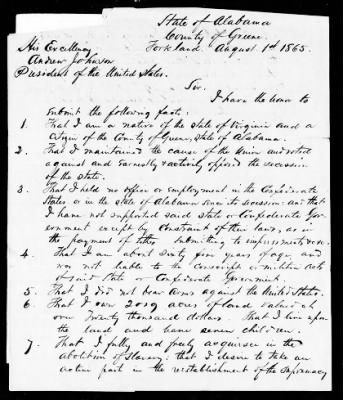 State of Alabama
County of Greene
Forkland August 1st 1865.
His Excellency
Andrew Johnson
President of the United States.
Sir.
I have the honor to
submit the following facts:
1. That I am a native of the State of Virginia and a
Citizen of the County of Greene, State of Alabama.
2. That I maintained the cause of the Union and voted
against and earnestly & actively opposed the secession
of the State.
3. That I held no office or employment in the Confederate
States or in the State of Alabama since its secession: and that
I have not supported said State or Confederate Gov-
ernment except by constraint of their laws, as in
the payment of tithes submitting to impressments &c &c.
4. That I am about Sixty five years of age, and
was not liable to the conscript or militia Acts
of said State or Confederate Government.
5. That I did not bear arms against the United States.
6. That I own 2019 acres of land valued at
over Twenty thousand dollars That I live upon
the land and have seven children.
7. That I fully and freely acquiesce in the
abolition of Slavery: that I desire to take an
active part in the reestablishment of the supremacy